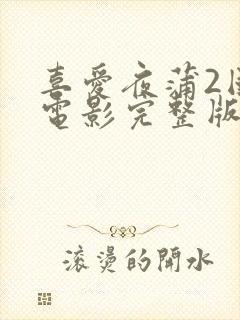 喜愛夜蒲2
電影完整版
滾燙的開水